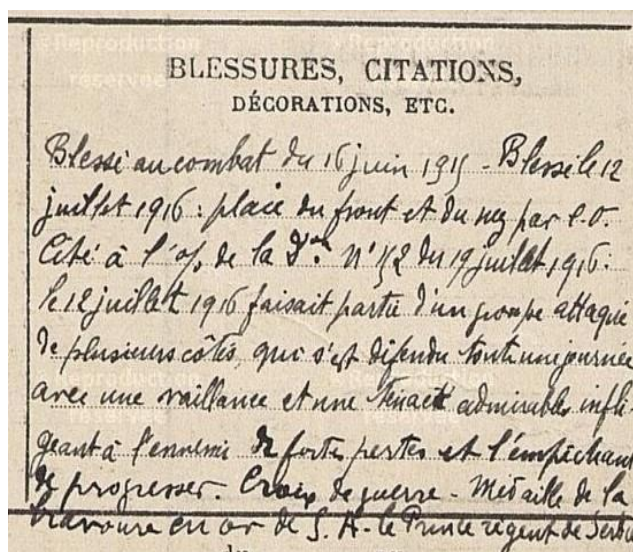 BLESSURES, CITATIONS,
DÉCORATIONS, ETC.
Blessé au combat du 16 juin 1915 - Blessé le 12
juillet 1916 : plaie du front et du nez par e.o.
Cité à l'o/. de la Don n° 152 du 19 juillet 1916 :
le 12 juillet 1916 faisait partie d'un groupe attaqué
de plusieurs côtés, qui s'est défendu toute une journée
avec une vaillance et une tenacité admirables infli-
geant à l'ennemi de fortes pertes et l'empêchant
de progresser. Croix de guerre - Médaille de la
bravoure en or de S. A. le Prince régent de Serbie